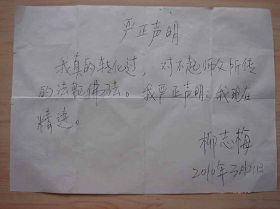 严正声明
我真的转化过，对不起师父所传
的法轮佛法。我要严正声明：我现在
精进。
柳志梅
2010年3月21日